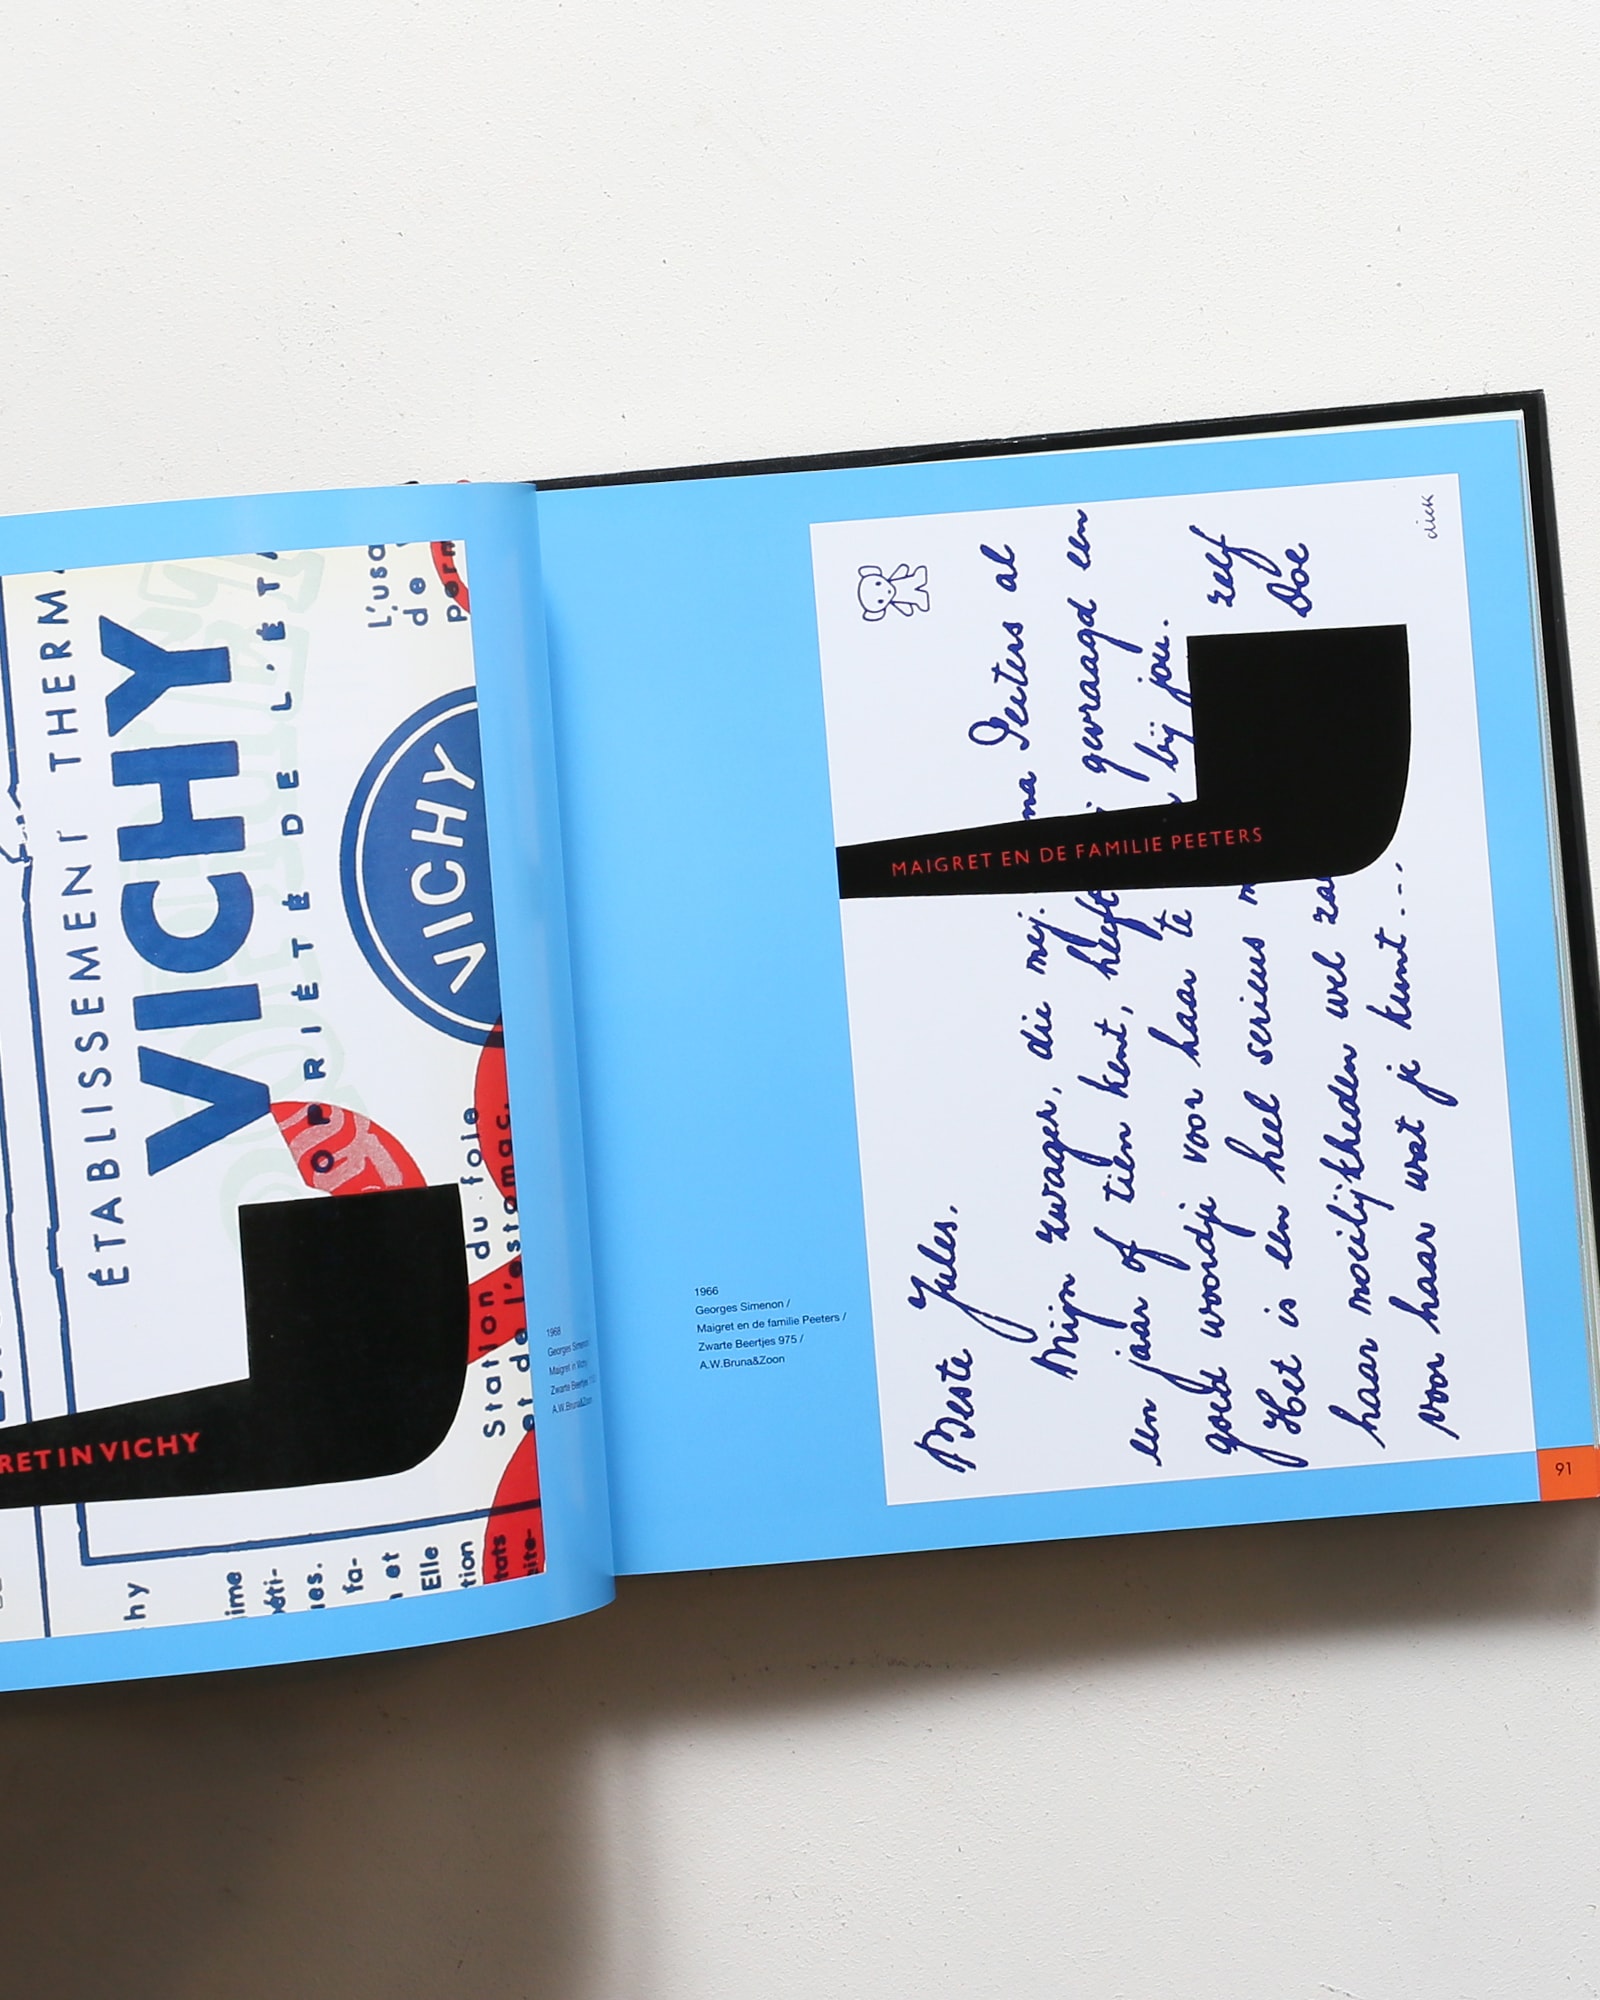 ÉTABLISSEMENT THERMA
VICHY
OPRIÉTÉ DE L'ÉTA
L'usa
de
perm
VICHY
Station du foie
et de l'estomac.
RET IN VICHY
hy
ime
péti-
ues.
fa-
et
Elle
tion
tats
eite-
1968
Georges Simenon
Maigret in Vichy
Zwarte Beertjes
A.W.Bruna&Zoon
1966
Georges Simenon /
Maigret en de familie Peeters /
Zwarte Beertjes 975 /
A.W.Bruna&Zoon
Beste Jules,
Mijn zwager, die mej. na Peeters al
een jaar of tien kent, heeft gevraagd een
goed woordje voor haar te bij jou.
Het is een heel serieus m zelf
haar moeilijkheden wel za Doe
voor haar wat je kunt...
MAIGRET EN DE FAMILIE PEETERS
dick
91